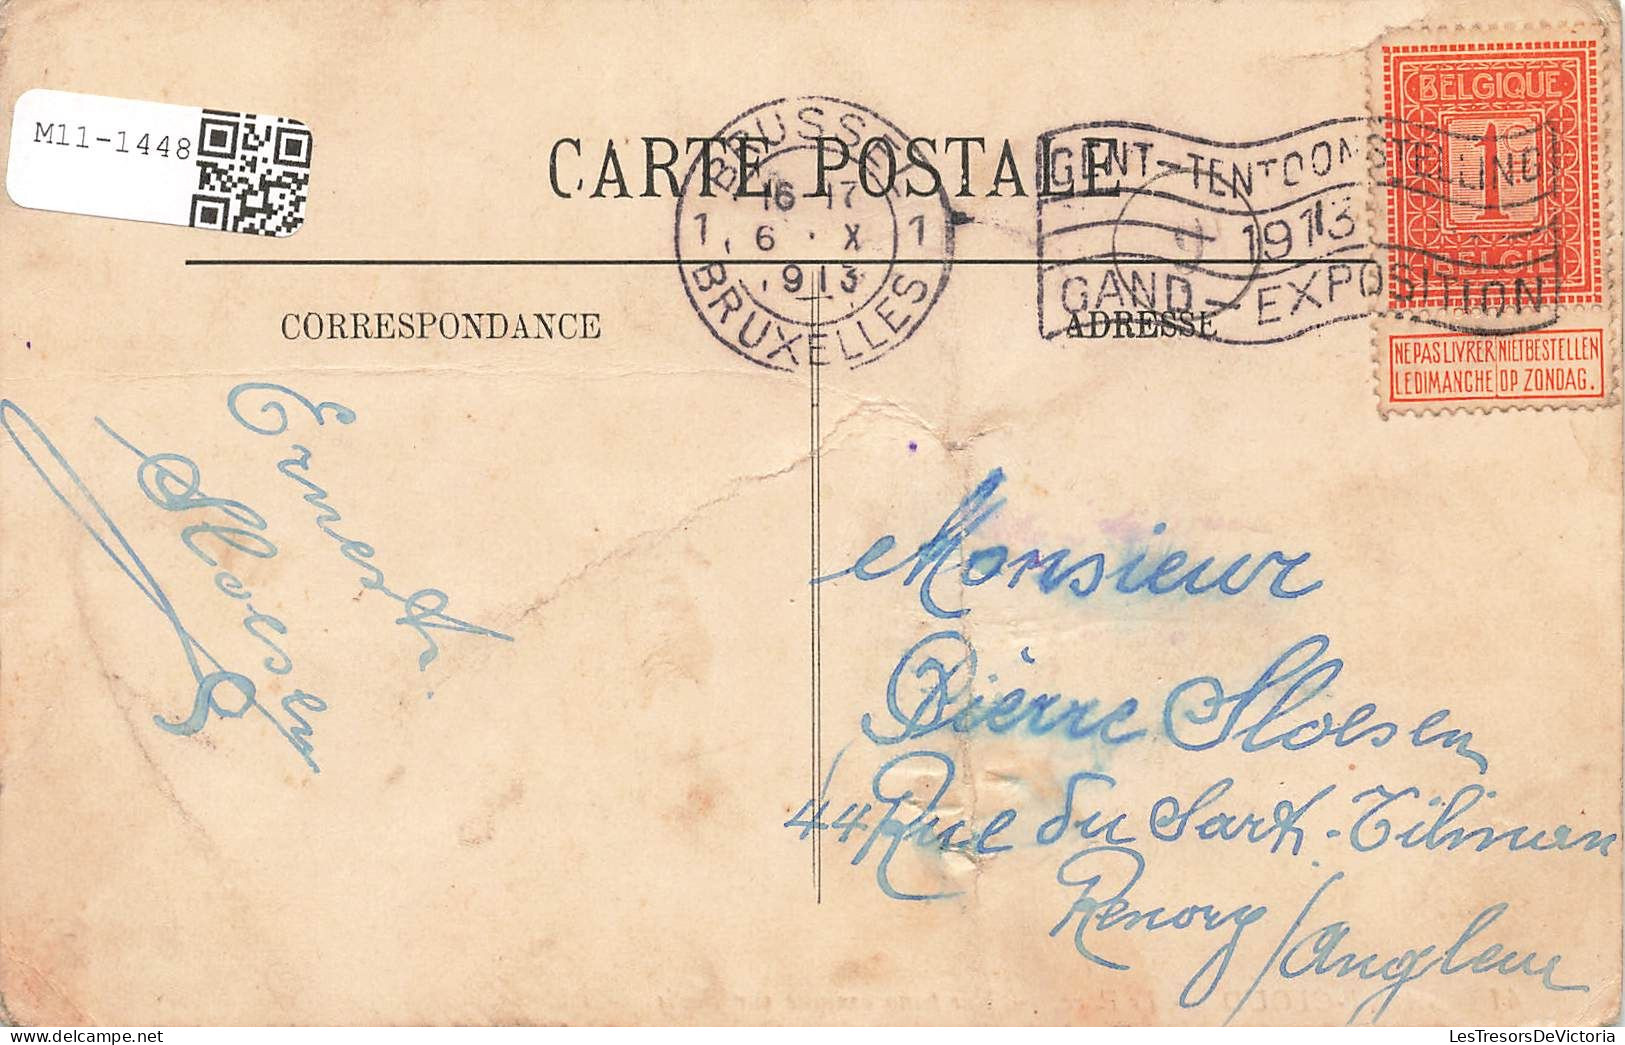 M11-1448
CARTE POSTALE
BRUSSEL
16-17
1 6 · X 1
1913
BRUXELLES
GENT-TENTOONSTELLING
1913
GAND-EXPOSITION
BELGIQUE
1c
BELGIË
NE PAS LIVRER NIET BESTELLEN
LE DIMANCHE OP ZONDAG.
CORRESPONDANCE
ADRESSE
Ernest
Sloesen
Monsieur
Pièrre Sloesen
44 Rue du Sart-Tilman
Renory / Angleur
LesTresorsDeVictoria